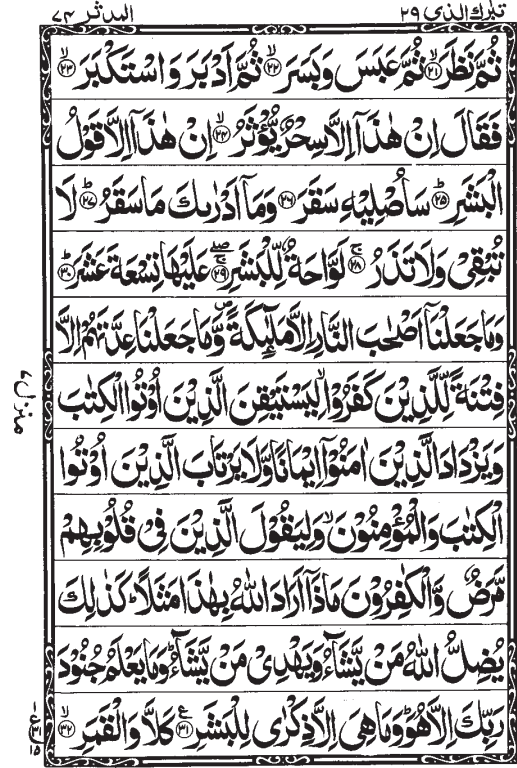 تبٰرك الذی ٢٩
المدثر ٧٤
ثُمَّ نَظَرَ ۙ﴿۲۱﴾ ثُمَّ عَبَسَ وَبَسَرَ ۙ﴿۲۲﴾ ثُمَّ اَدْبَرَ وَاسْتَكْبَرَ ۙ﴿۲۳﴾
فَقَالَ اِنْ هٰذَاۤ اِلَّا سِحْرٌ یُّؤْثَرُ ۙ﴿۲۴﴾ اِنْ هٰذَاۤ اِلَّا قَوْلُ
الْبَشَرِ ؕ﴿۲۵﴾ سَاُصْلِیْهِ سَقَرَ ﴿۲۶﴾ وَمَاۤ اَدْرٰىكَ مَا سَقَرُ ؕ﴿۲۷﴾ لَا
تُبْقِیْ وَلَا تَذَرُ ۚ﴿۲۸﴾ لَوَّاحَةٌ لِّلْبَشَرِ ۚۖ﴿۲۹﴾ عَلَیْهَا تِسْعَةَ عَشَرَ ؕ﴿۳۰﴾
وَمَا جَعَلْنَاۤ اَصْحٰبَ النَّارِ اِلَّا مَلٰٓىِٕكَةً ۪ وَّمَا جَعَلْنَا عِدَّتَهُمْ اِلَّا
فِتْنَةً لِّلَّذِیْنَ كَفَرُوْا ۙ لِیَسْتَیْقِنَ الَّذِیْنَ اُوْتُوا الْكِتٰبَ
وَیَزْدَادَ الَّذِیْنَ اٰمَنُوْۤا اِیْمَانًا وَّلَا یَرْتَابَ الَّذِیْنَ اُوْتُوا
الْكِتٰبَ وَالْمُؤْمِنُوْنَ ۙ وَلِیَقُوْلَ الَّذِیْنَ فِیْ قُلُوْبِهِمْ
مَّرَضٌ وَّالْكٰفِرُوْنَ مَاذَاۤ اَرَادَ اللّٰهُ بِهٰذَا مَثَلًا ؕ كَذٰلِكَ
یُضِلُّ اللّٰهُ مَنْ یَّشَآءُ وَیَهْدِیْ مَنْ یَّشَآءُ ؕ وَمَا یَعْلَمُ جُنُوْدَ
رَبِّكَ اِلَّا هُوَ ؕ وَمَا هِیَ اِلَّا ذِكْرٰی لِلْبَشَرِ ﴿۳۱﴾ ع كَلَّا وَالْقَمَرِ ۙ﴿۳۲﴾
منزل ٧
ع ٣١ ١٥